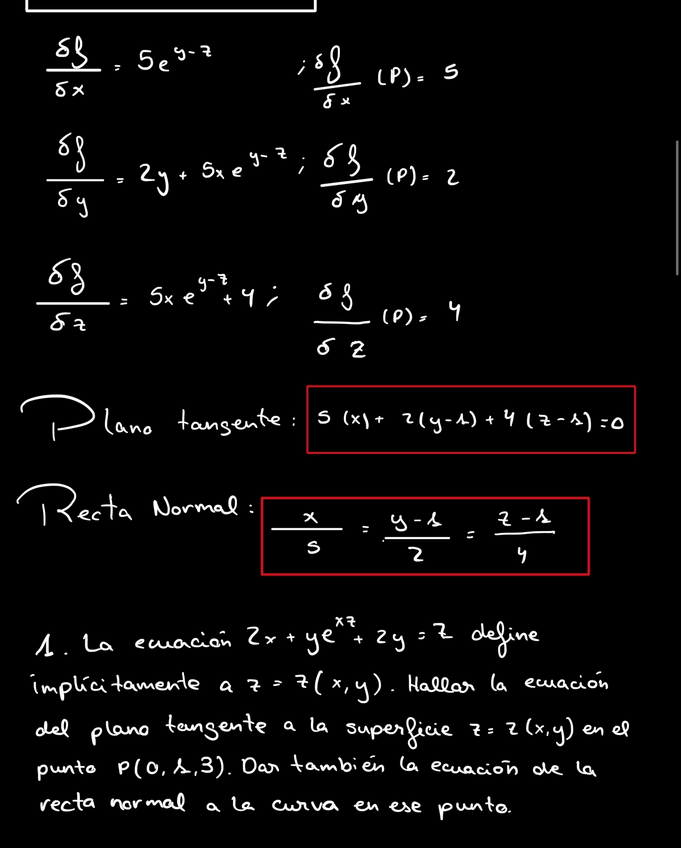 δf/δx = 5e^(y-z) ; δf/δx (P) = 5
δf/δy = 2y + 5xe^(y-z) ; δf/δy (P) = 2
δf/δz = 5xe^(y-z) + 4 ; δf/δz (P) = 4
Plano tangente: 5(x) + 2(y-1) + 4(z-1) = 0
Recta Normal: x/5 = (y-1)/2 = (z-1)/4
1. La ecuación 2x + ye^(xz) + 2y = z define
implícitamente a z = z(x,y). Hallar la ecuación
del plano tangente a la superficie z = z(x,y) en el
punto P(0,1,3). Dar también la ecuación de la
recta normal a la curva en ese punto.